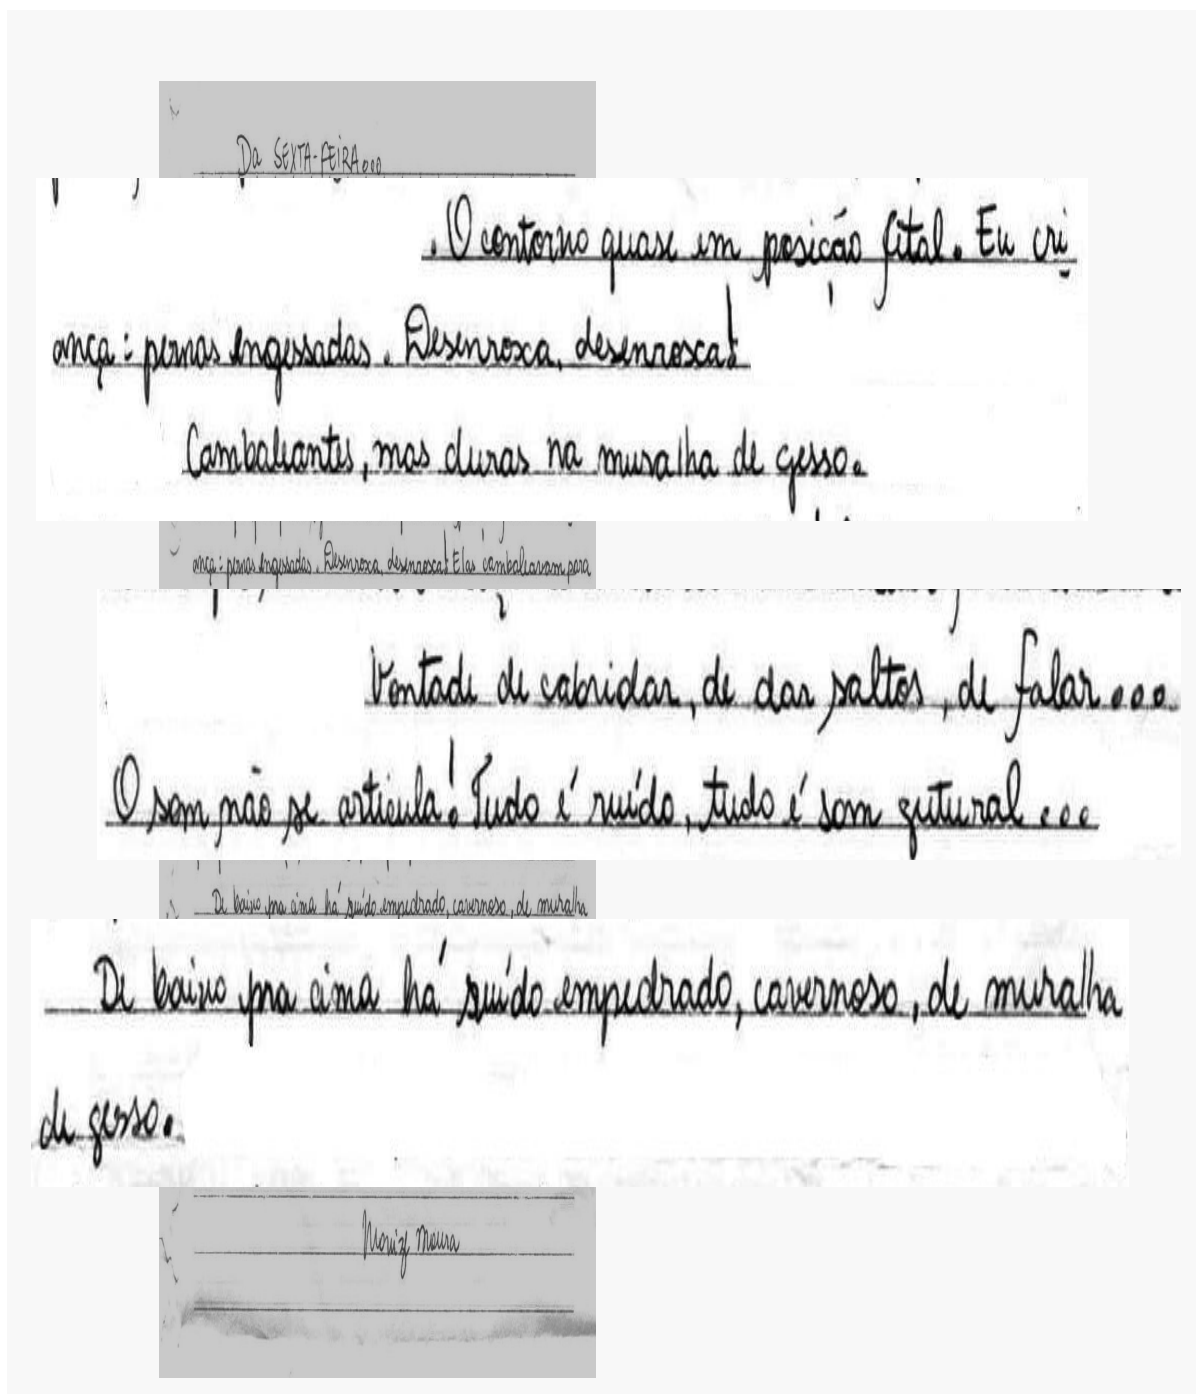 Da SEXTA-FEIRA...
. O contorno quase em posição fital. Eu cri
ança: pernas engessadas. Desenrosca, desenrosca!
Cambaleantes, mas duras na muralha de gesso.
ança: pernas engessadas. Desenrosca, desenrosca! Elas cambalearam para
Vontade de cabridar, de dar saltos, de falar...
O som não se articula! Tudo é ruído, tudo é som gutural...
De baixo pra cima há ruído empedrado, cavernoso, de muralha
De baixo pra cima há ruído empedrado, cavernoso, de muralha
de gesso.
Moura